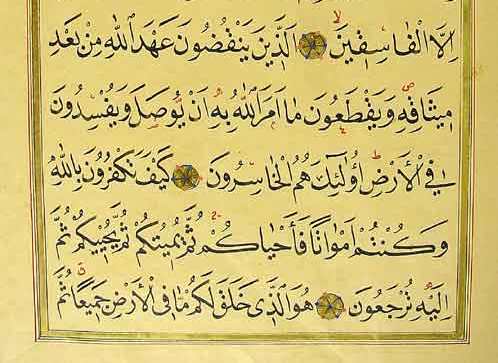 اِلَّا الْفَاسِقٖينَ ۙ اَلَّذٖينَ يَنْقُضُونَ عَهْدَ اللّٰهِ مِنْ بَعْدِ
مٖيثَاقِهٖ ۖ وَيَقْطَعُونَ مَا اَمَرَ اللّٰهُ بِهٖ اَنْ يُوصَلَ وَيُفْسِدُونَ
فِي الْاَرْضِ ۜ اُولٰئِكَ هُمُ الْخَاسِرُونَ كَيْفَ تَكْفُرُونَ بِاللّٰهِ
وَكُنْتُمْ اَمْوَاتًا فَاَحْيَاكُمْ ثُمَّ يُمٖيتُكُمْ ثُمَّ يُحْيٖيكُمْ ثُمَّ
اِلَيْهِ تُرْجَعُونَ هُوَ الَّذٖي خَلَقَ لَكُمْ مَا فِي الْاَرْضِ جَمٖيعًا ثُمَّ